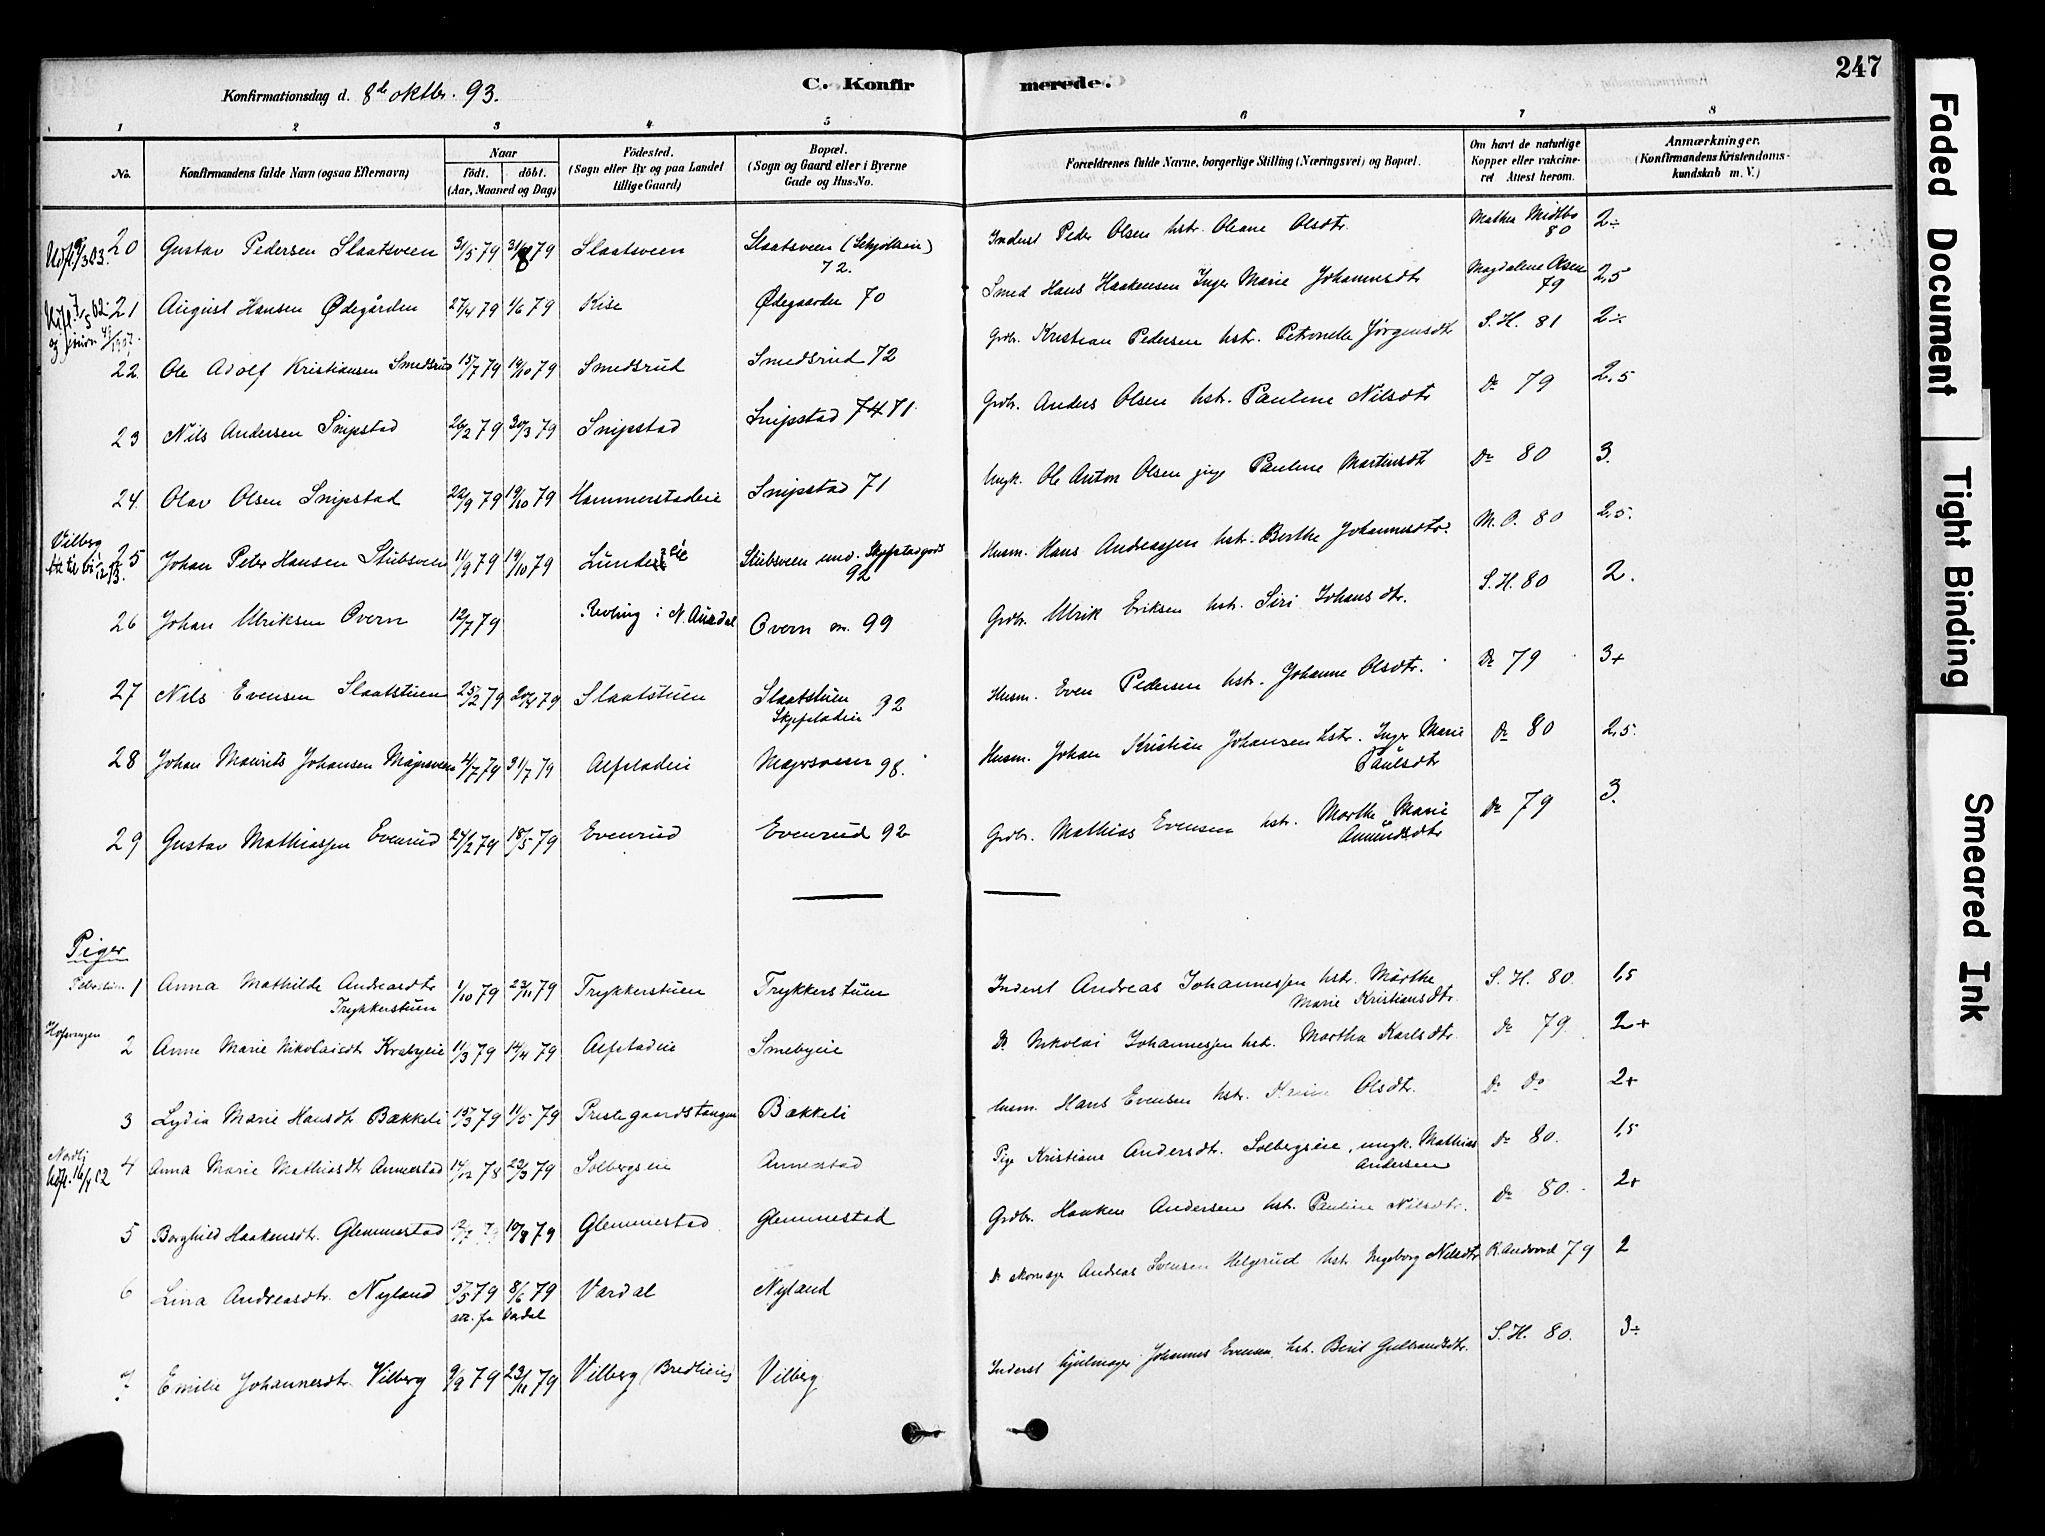 247
Konfirmationsdag d. 8de oktbr. 93.
C. Konfirmerede.
1 2 3 4 5 6 7 8
No.
Konfirmandens fulde Navn (ogsaa Efternavn)
Naar
födt. döbt.
(Aar, Maaned og Dag)
Födested.
(Sogn eller By og paa Landet
tillige Gaard)
Bopæl.
(Sogn og Gaard eller i Byerne
Gade og Hus-No.
Forældrenes fulde Navne, borgerlige Stilling (Næringsvei) og Bopæl.
Om havt de naturlige
Kopper eller vakcine-
ret Attest herom.
Anmærkninger.
(Konfirmandens Kristendoms-
kundskab m. V.)
20 Gustav Pedersen Slaatsveen 31/5 79 31/8 79 Slaatsveen Slaatsveen 72. Inderst Peder Olsen hstr. Oleane Olsdtr. Mathea Midtbo 80 2÷
21 August Hansen Ødegården 27/4 79 1/6 79 Kise Ødegaarden 70 Smed Hans Haakensen Inger Marie Johannesdtr Magdalene Olsen 79 2,5
22. Ole Adolf Kristiansen Smedsrud 15/7 79 19/10 79 Smedsrud Smedsrud 72 Grdbr. Kristian Pedersen hstr. Petronelle Jørgensdtr S. H. 81 2÷
23 Nils Andersen Snipstad 26/2 79 30/3 79 Snipstad Snipstad 71. Grdbr. Anders Olsen hstr. Pauline Nilsdtr Do 79 2,5
24. Olav Olsen Snipstad 22/9 79 19/10 79 Hammerstadeie Snipstad 71 Ungk. Ole Anton Olsen pige Pauline Martinsdtr Do 80 3.
Vilberg
25 Johan Peter Hansen Stubsveen 11/9 79 19/10 79 Lundeeie Stubsveen 92 Husm. Hans Andreassen hstr. Berthe Johannesdtr. M. O. 80 2,5.
26 Johan Ulriksen Overn 12/7 79 i N. Aurdal Overn 99 Grdbr. Ulrik Eriksen hstr. Siri Johansdtr. S. H. 80 2.
27 Nils Evensen Slaatstuen 25/2 79 20/4 79 Slaatstuen Slaatstuen 92 Husm. Even Pedersen hstr. Johanne Olsdtr. Do 79 3+
28 Johan Maurits Johansen Majorsveen 4/7 79 31/7 79 Alfstadeie Majorsveen 98. Husm. Johan Kristian Johansen hstr. Inger Marie
Paulsdtr Do 80 2,5.
29 Gustav Mathiassen Evenrud 24/2 79 18/5 79 Evenrud Evenrud 92 Grdbr. Mathias Evensen hstr. Marthe Marie
Amundsdtr Do 79 3.
Piger
1 Anna Mathilde Andreasdtr
Trykkerstuen 1/10 79 23/11 79 Trykkerstuen Trykkerstuen Inderst Andreas Johannessen hstr. Marthe
Marie Kristiansdtr. S. H. 80. 1,5
2 Anne Marie Nikolaisdtr Krabyeie 11/3 79 14/4 79 Alfstadeie Smebyeie Do Nikolai Johannessen hstr. Martha Karlsdtr. Do 79. 2+
3 Lydia Marie Hansdtr Bakkeli 15/3 79 11/5 79 Prestegaardstangen Bakkeli husm. Hans Evensen hstr. Olsdtr. Do Do 2+
4 Anna Marie Mathiasdtr Annestad 14/12 78 23/3 79 Solbergseie Annestad Pige Kristiane Andersdtr. Solbergseie, ungk. Mathias
Andersen Do 80. 1,5
5 Borghild Haakensdtr. Glemmestad 12/7 79 10/8 79 Glemmestad Glemmestad Grdbr. Haaken Andersen hstr. Pauline Nilsdtr. Do 80. 2+
6 Lina Andreasdtr. Nyland 5/5 79 8/6 79 Vardal Nyland Do skomager Andreas Svensen Helgerud hstr. Ingeborg Nilsdtr 79 2
att. fr Vardal
7 Emilie Johannesdtr. Vilberg 9/9 79 23/11 79 Vilberg (Bredlien) Vilberg Inderst hjulmager Johannes Evensen, hstr. Berit Gulbrandsdtr. S. H. 80. 3÷
Faded Document
Tight Binding
Smeared Ink